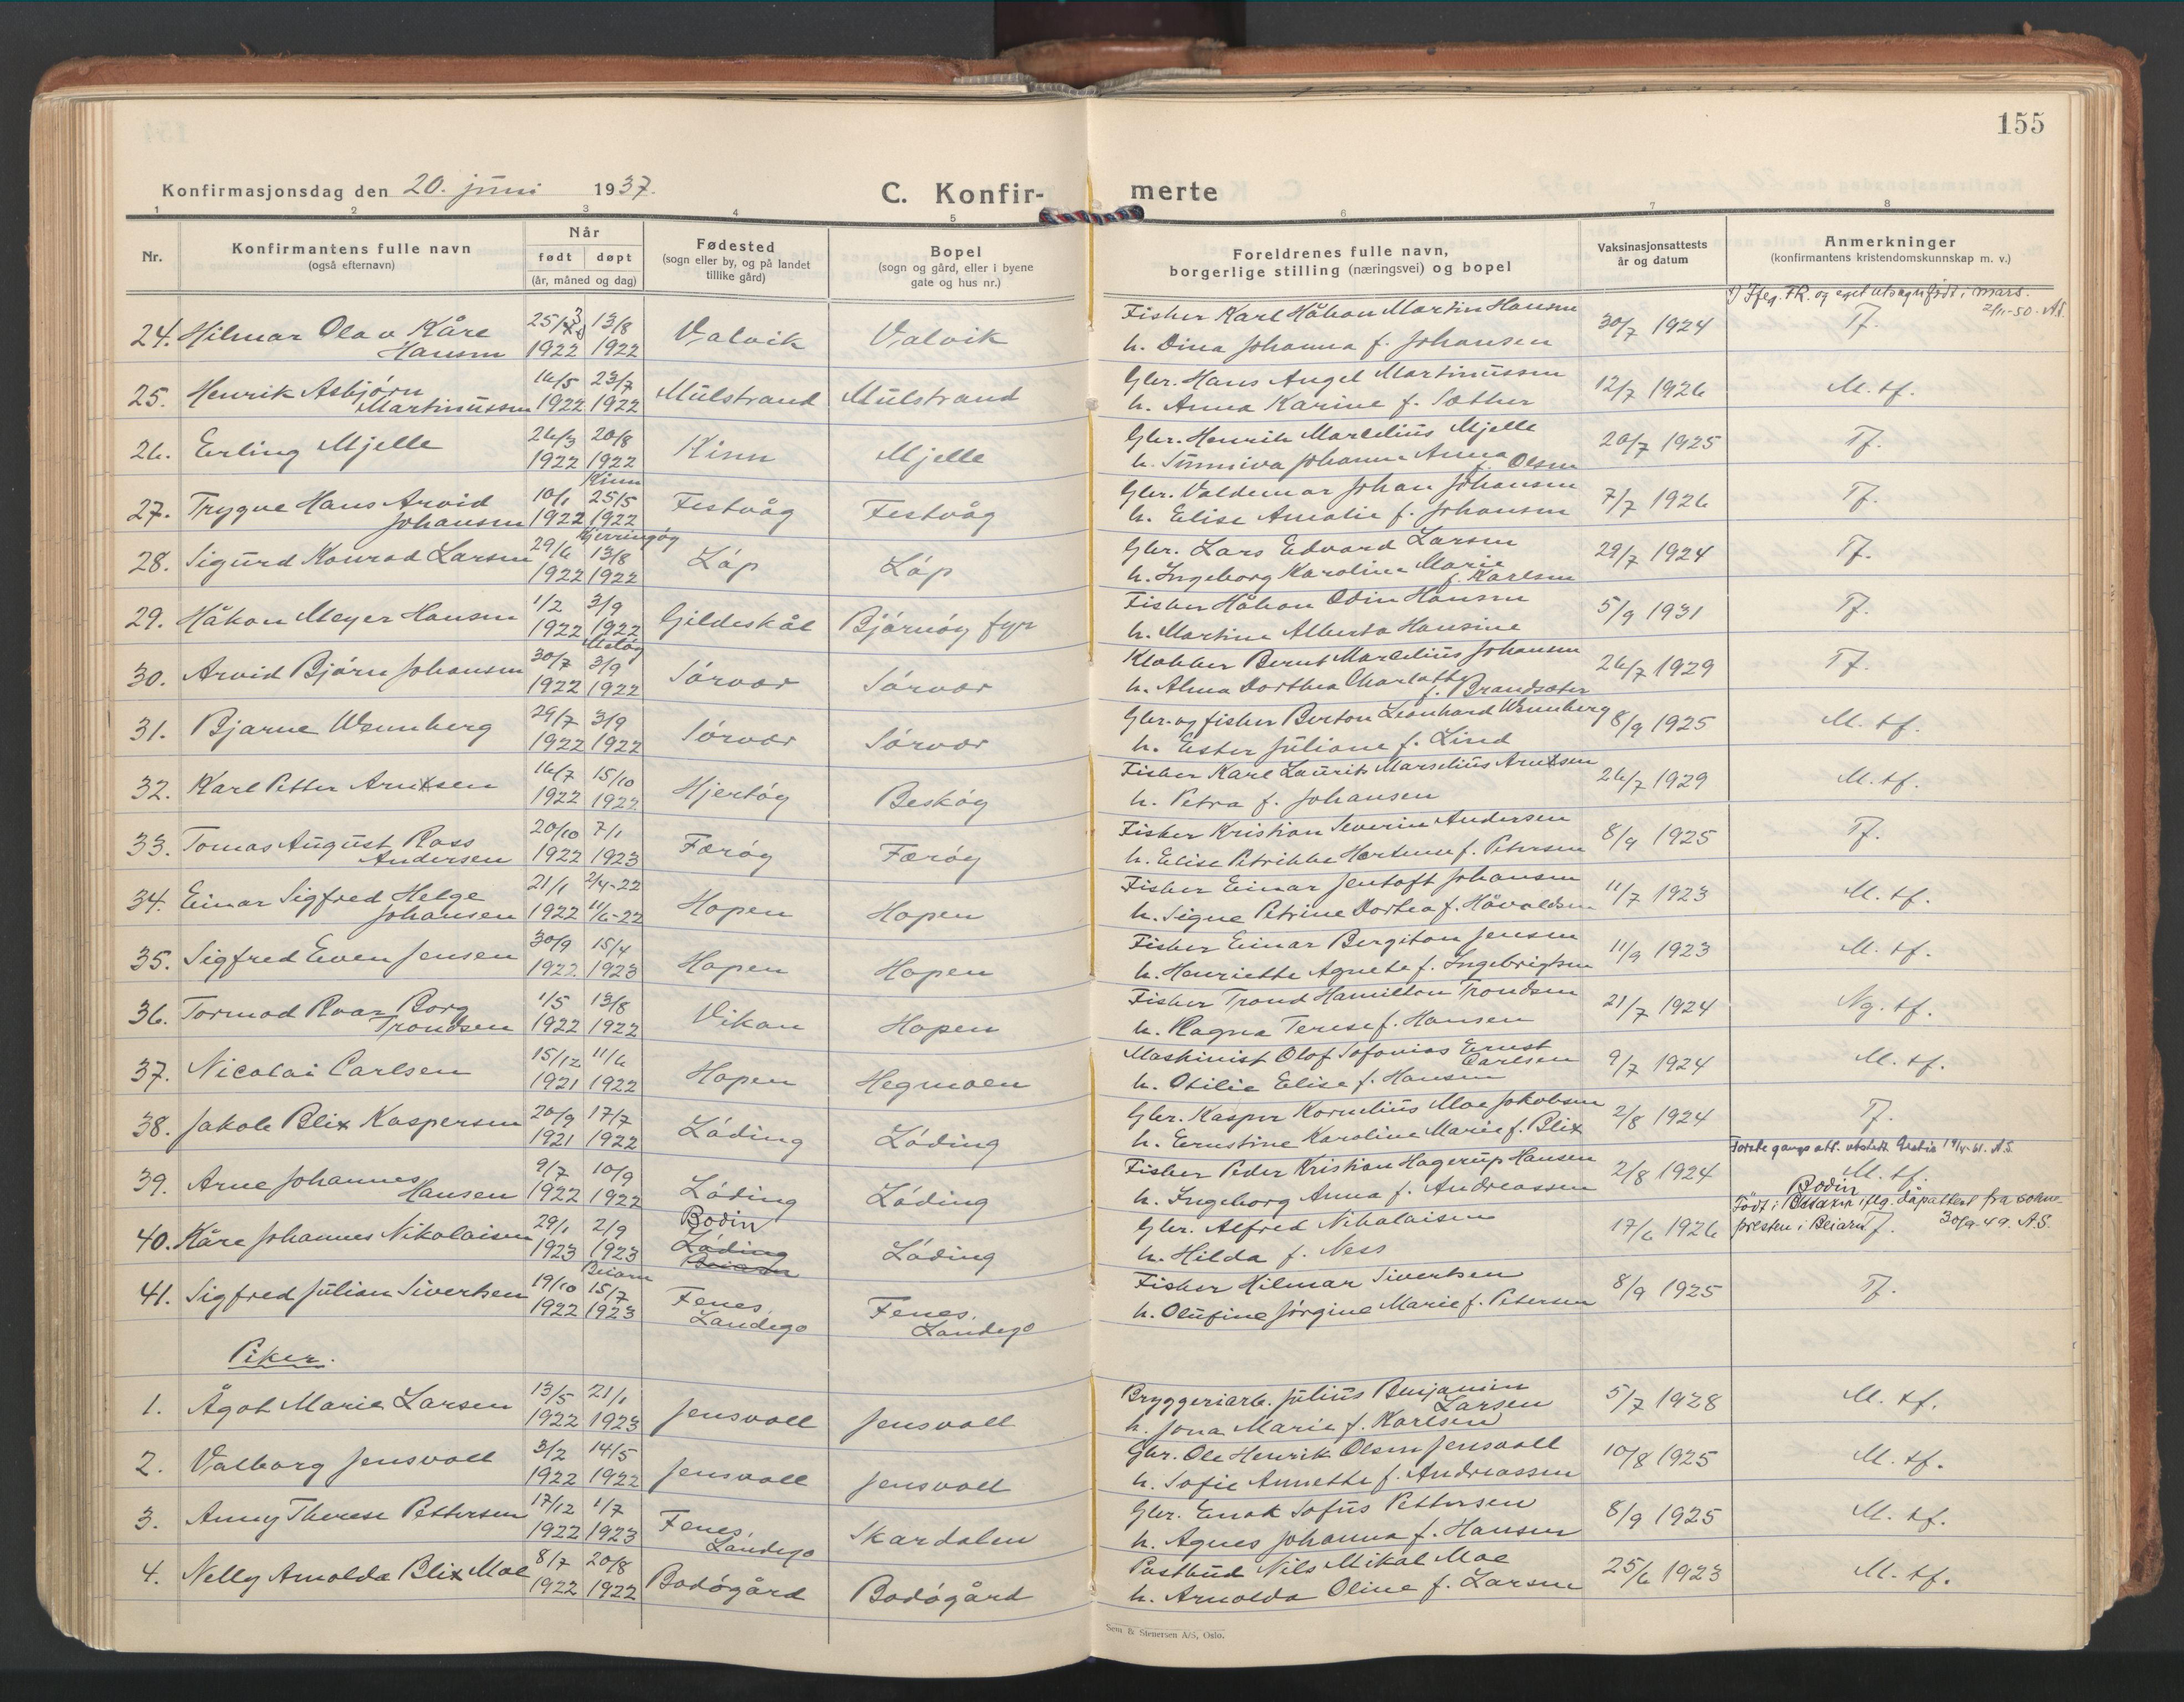 155
Konfirmasjonsdag den 20. juni 1937.
C. Konfir-merte
1 2 3 4 5 6 7 8
Nr.
Konfirmantens fulle navn
(også efternavn)
Når
født døpt
(år, måned og dag)
Fødested
(sogn eller by, og på landet
tillike gård)
Bopel
(sogn og gård, eller i byene
gate og hus nr.)
Foreldrenes fulle navn,
borgerlige stilling (næringsvei) og bopel
Vaksinasjonsattests
år og datum
Anmerkninger
(konfirmantens kristendomskunnskap m. v.)
Ifлg. FK. og eget utsagn født i mars.
2/11-50. A.S.
24. Hilmar Olav Kåre 25/3 13/8 Valvik Valvik Fisker Karl Håkon Martin Hansen 30/7 1924 Tf.
Hansen 1922 1922 h. Dina Johanna f. Johansen
25. Henrik Asbjørn 16/5 23/7 Mulstrand Mulstrand Gbr. Hans Angel Martinussen 12/7 1926 M. tf.
Martinussen 1922 1922 h. Anna Karine f. Sæther
26. Erling Mjelle 26/3 20/8 Kinn Mjelle Gbr. Henrik Marelius Mjelle 20/7 1925 Tf.
1922 1922 h. Sunniva Johanna Anna f. Olsen
Kinn
27. Trygve Hans Arvid 10/1 25/5 Festvåg Festvåg Gbr. Valdemar Johan Johansen 7/7 1926 Tf.
Johansen 1922 1922 h. Elise Amalie f. Johansen
Kjerringøy
28. Sigurd Konrad Larsen 29/6 13/8 Løp Løp Gbr. Lars Edvard Larsen 29/7 1924 Tf.
1922 1922 h. Ingeborg Karoline Marie f. Karlsen
29. Håkon Meyer Hansen 1/2 3/9 Gildeskål Bjørnøy fyr Fisker Håkon Odin Hansen 5/9 1931 Tf.
1922 1922 h. Martine Alberta Hansine
30. Arvid Bjørn Johansen 30/7 3/9 Sørvær Sørvær Klokker Bernt Marelius Johansen 26/7 1929 Tf.
1922 1922 h. Alma Dorthea Charlotte f. Brandsæter
31. Bjarne Wennberg 29/7 3/9 Sørvær Sørvær Gbr. og fisker Berton Leonhard Wennberg 8/9 1925 M. tf.
1922 1922 h. Ester Juliane f. Lind
32. Karl Petter Arntsen 16/7 15/10 Hjertøy Beskøy Fisker Karl Laurits Marselius Arntsen 26/7 1929 M. tf.
1922 1922. h. Petra f. Johansen
33. Tomas August Ross 20/10 7/1 Færøy Færøy Fisker Kristian Severin Andersen 8/9 1925 Tf.
Andersen 1922 1923 h. Elise Petrikke Hortense f. Petersen
34. Einar Sigfred Helge 21/1 2/4-22 Hopen Hopen Fisker Einar Jentoft Johansen 11/7 1923 M. tf.
Johansen 1922 11/6-22 h. Signe Petrine Dortea f. Håvoldsen
35. Sigfred Even Jensen 30/9 15/4 Hopen Hopen Fisker Einar Bergiton Jensen 11/9 1923 M. tf.
1922. 1923 h. Henriette Agnete f. Ingebrigtsen
36. Tormod Roar Borg 1/5 13/8 Vikan Hopen Fisker Trond Hamilton Trondsen 21/7 1924 Ng. tf.
Trondsen 1922 1922 h. Ragna Terese f. Hansen
37. Nicolai Carlsen 15/12 11/6 Hopen Hegmoen Maskinist Olaf Sofonias Ernst Carlsen 9/7 1924 M. tf.
1921 1922 h. Otilie Elise f. Hansen
38. Jakob Blix Kaspersen 20/9 17/7 Løding Løding Gbr. Kasper Kornelius Moe Jakobsen 2/8 1924 Tf.
1921 1922 h. Ernestine Karoline Marie f. Blix
39. Arne Johannes 9/7 10/9 Løding Løding Fisker Peder Kristian Hagerup Hansen 2/8 1924 M. tf.
Hansen 1922 1922 h. Ingeborg Anna f. Andreassen
40. Kåre Johannes Nikolaisen 29/1 2/9 Bodin Løding Beiarn Løding Gbr. Alfred Nikolaisen 17/6 1926 Tf.
1923 1923 h. Hilda f. Ness
Bodin
Født i iflg. dåpattest fra sokne-
presten i Beiarn 30/9-49. A.S.
Beiarn
41. Sigfred Julian Sivertsen 19/10 15/7 Fenes, Landego Fenes, Landego Fisker Hilmar Sivertsen 8/9 1925 Tf.
1922 1923 h. Olufine Jørgine Marie f. Petersen
Piker.
1. Ågot Marie Larsen 13/5 21/1 Jensvoll Jensvoll Bryggeriarb. Julius Benjamin Larsen 5/7 1928 M. tf.
1922 1923 h. Jona Marie f. Karlsen
2. Valborg Jensvoll 3/2 14/5 Jensvoll Jensvoll Gbr. Ole Henrik Olsen Jensvoll 10/8 1925 M. tf.
1922 1922 h. Sofie Annette f. Andreassen
3. Anny Therese Pettersen 17/12 1/7 Fenes, Landego Skardalen Gbr. Enok Sofus Pettersen 8/9 1925 M. tf.
1922 1923 h. Agnes Johanna f. Hansen
4. Nelly Arnolda Blix Moe 8/7 20/8 Bodøgård Bodøgård Postbud Nils Mikal Moe 25/6 1923 M. tf.
1922 1922 h. Arnolda Oline f. Larsen
Sem & Stenersen A/S, Oslo.